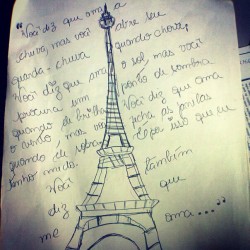 "Você diz que ama a
chuva, mas você abre seu
guarda-chuva quando chove,
Você diz que ama o sol, mas você
procura um ponto de sombra
quando ele brilha Você diz que ama
o vento, mas você fecha as janelas
quando ele sopra É por isso que eu
tenho medo.
Você também
diz que
me ama..."